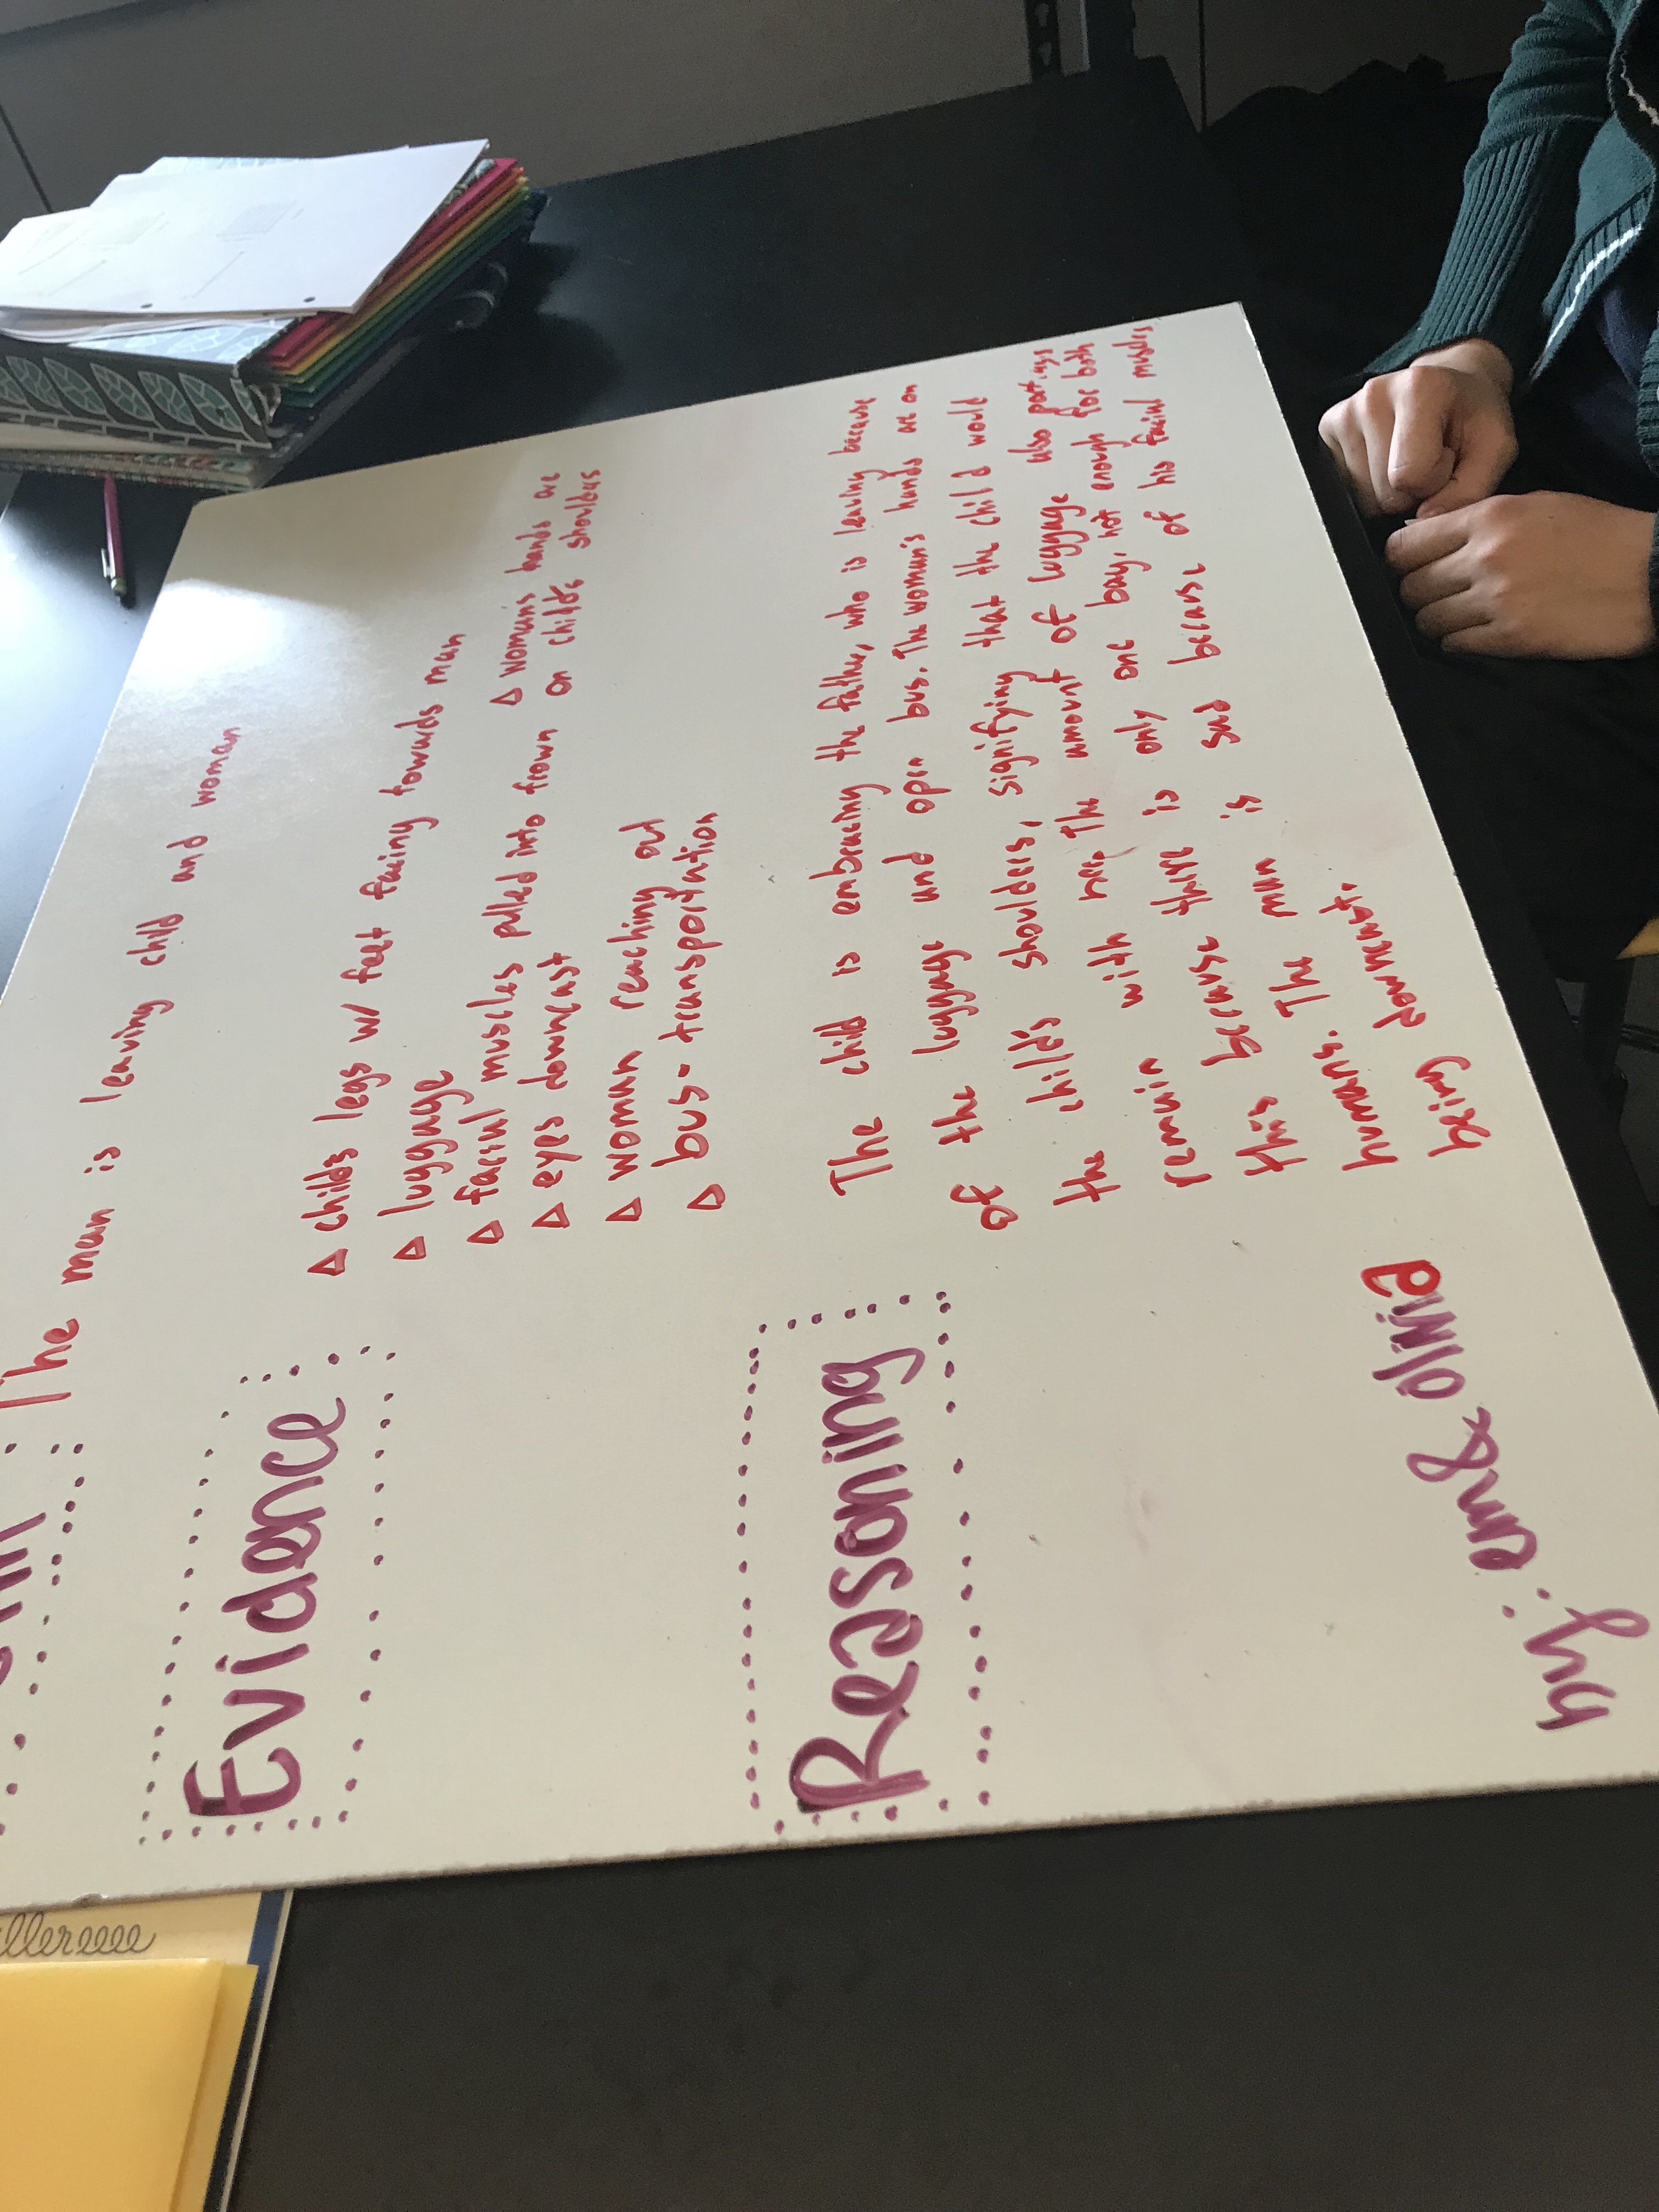 The man is leaving child and woman
Evidence
△ childs legs w/ feet facing towards man
△ luggage
△ facial muscles pulled into frown
△ eyes downcast
△ woman reaching out
△ bus - transportation
△ woman's hands are
on child's shoulders
Reasoning
The child is embracing the father, who is leaving because
of the luggage and open bus. The woman's hands are on
the child's shoulders, signifying that the child would
remain with her. The amount of luggage also portrays
this because there is only one bag, not enough for both
humans. The man is sad because of his facial muscles
being downcast.
by: em & olivia